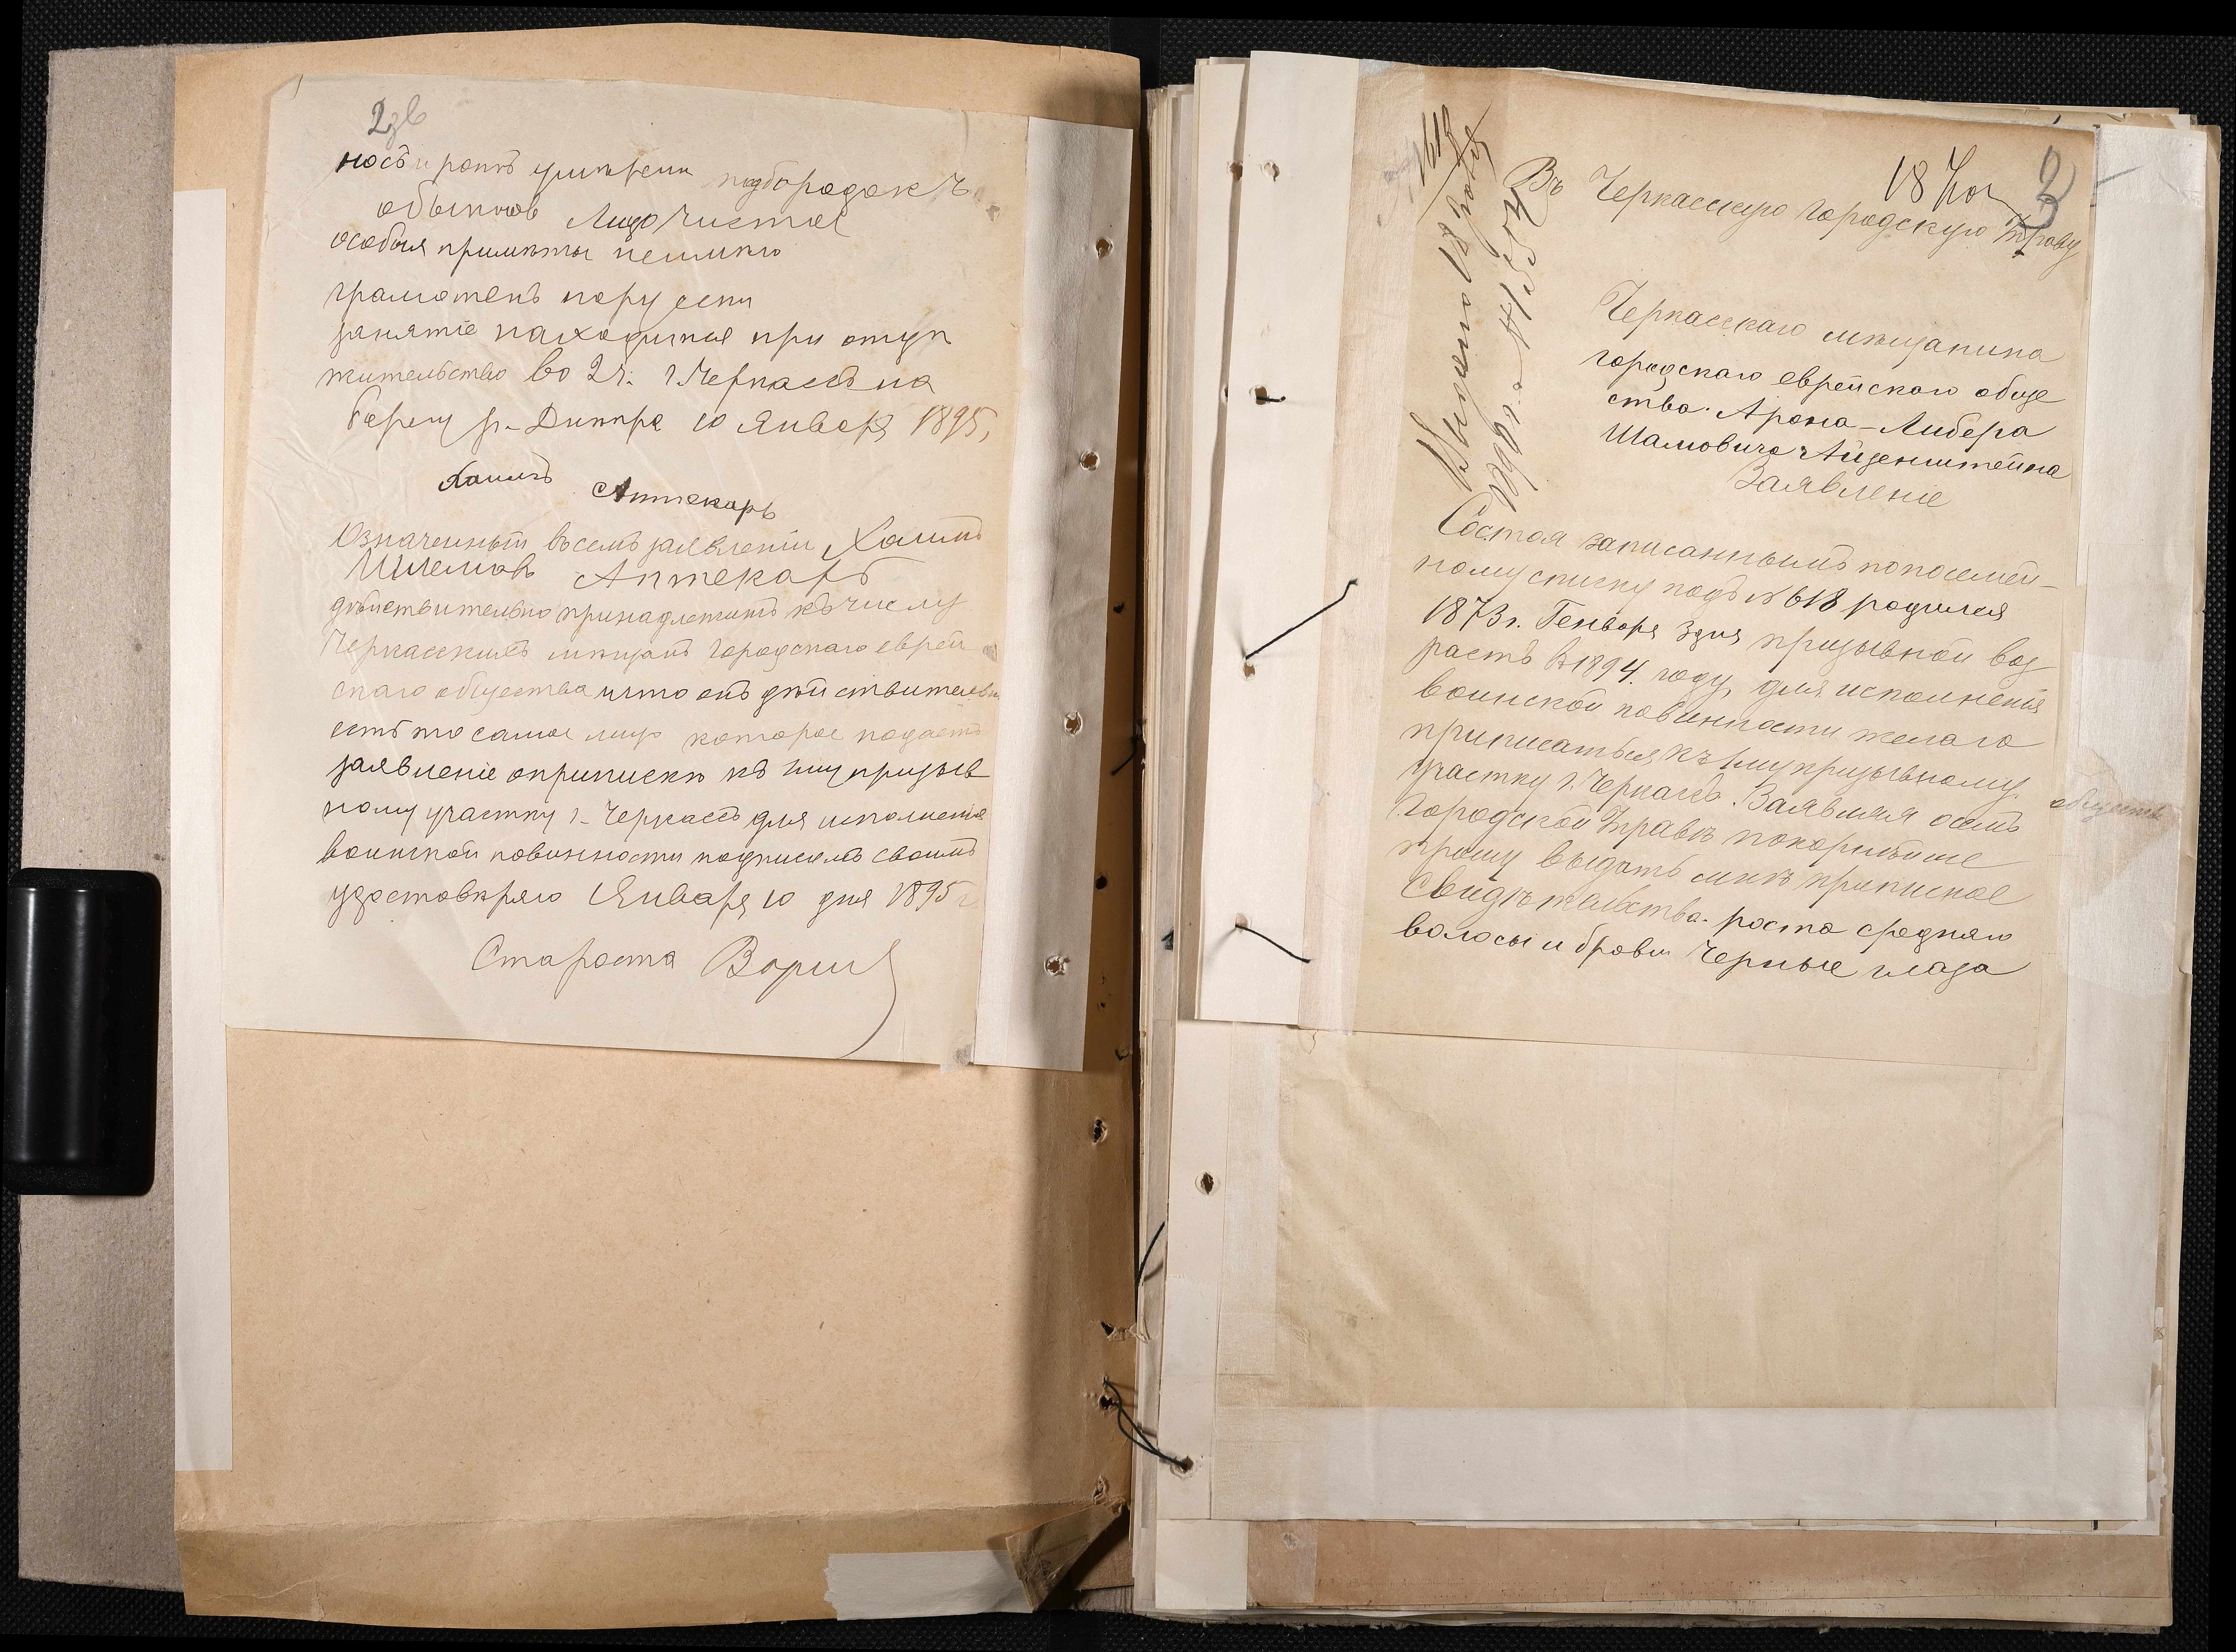 2зв
носъ и ротъ умѣрены подбородокъ
обыкнов Лицо чистое
особыя примѣты неимѣю
грамотенъ порусски
занятіе нахожуся при отцѣ
жительство во 2 ч. г. Черкассъ на
берегу р. Днѣпра 10 Января 1895,
Хаимъ Аптекарь
Означенный въ семъ заявленіи Хаимъ
Шлемовъ Аптекарь
дѣйствительно принадлежитъ къ числу
Черкасскихъ мѣщанъ городскаго еврей
скаго общества и что онъ дѣйствительно
есть то самое лицо которое подаетъ
заявленіе о припискѣ къ 1му призыв
ному участку г. Черкассъ для исполненія
воинской повинности подписемъ своимъ
удостовѣряю Января 10 дня 1895 г
Староста
3
18
Въ Черкасскую городскую Управу
Черкасскаго мѣщанина
городскаго еврейскаго обще
ства Арона-Либера
Шамовича Айзенштейна
Заявленіе
Состоя записаннымъ по посемей-
ному списку подъ № 618 родился
1873 г. Генваря 3 дня призывной воз
растъ в 1894. году, для исполненія
воинской повинности желаю
приписаться къ 1му призывному
участку г. Черкассъ. Заявляя о семъ
Городской Управѣ покорнѣйше
прошу выдать мнѣ приписное
Свидѣтельство. роста средняго
волосы и брови Черные глаза